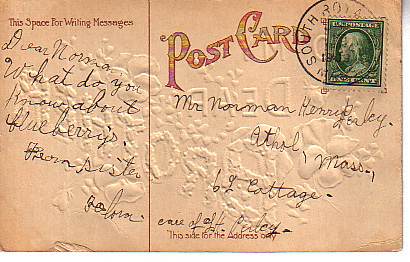 This Space For Writing Messages
POST CARD
Dear Norma
What do you
know about
blueberrys.
From sister
SOUTH ROYAL
ONE CENT
Mr Norman Henry
Perley.
Athol, Mass.,
Cottage.
care of H. Perley.
This side for the Address only